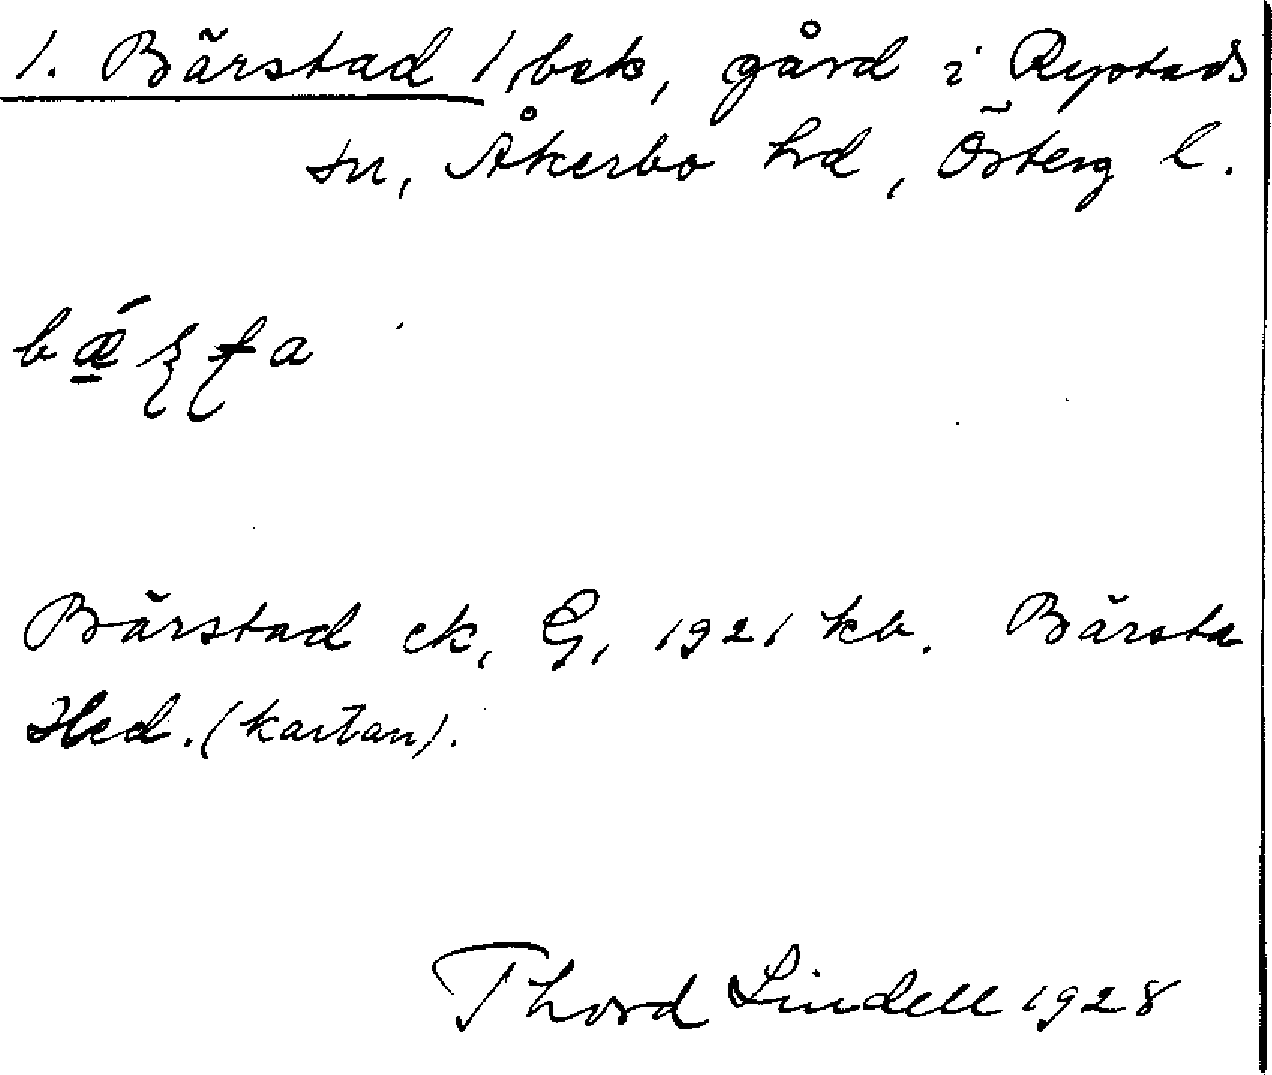 1. Bärstad 1, bek, gård i Rystads
sn, Åkerbo hd, Österg l.
bǽ̱ʂʈa
Bärstad ek, G, 1921 kb. Bärsta
Hed. (kartan).
Thord Lindell 1928